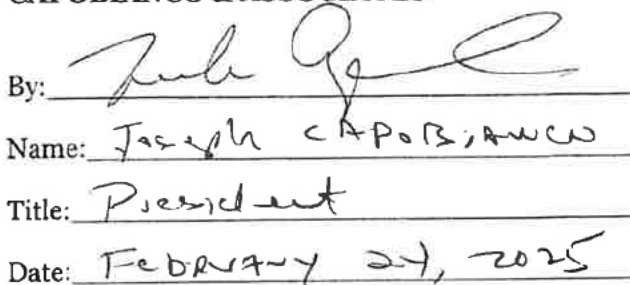 By:
Name: Joseph CAPOBIANCO
Title: President
Date: FEBRUARY 24, 2025